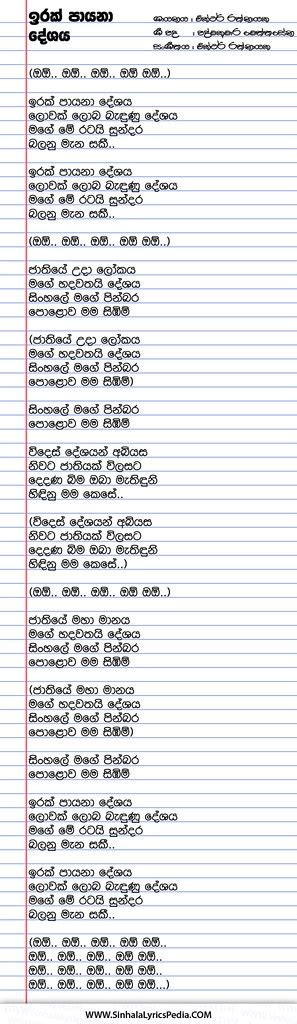 ඉරක් පායනා
දේශය
ගායනය : වික්ටර් රත්නායක
සංගීතය : වික්ටර් රත්නායක
(ඔඕ.. ඔඕ.. ඔඕ.. ඔඕ ඔඕ..)
ඉරක් පායනා දේශය
ලොවක් ලොබ බැඳුණු දේශය
මගේ මේ රටයි සුන්දර
බලනු මැන සකී..
ඉරක් පායනා දේශය
ලොවක් ලොබ බැඳුණු දේශය
මගේ මේ රටයි සුන්දර
බලනු මැන සකී..
(ඔඕ.. ඔඕ.. ඔඕ.. ඔඕ ඔඕ..)
ජාතියේ උදා ලෝකය
මගේ හදවතයි දේශය
සිංහලේ මගේ පින්බර
පොළොව මම සිඹිමි
(ජාතියේ උදා ලෝකය
මගේ හදවතයි දේශය
සිංහලේ මගේ පින්බර
පොළොව මම සිඹිමි)
සිංහලේ මගේ පින්බර
පොළොව මම සිඹිමි
විදෙස් දේශයන් අබියස
නිවට ජාතියක් විලසට
දෙදණ බිම ඔබා මැතිඳුනි
හිඳිනු මම කෙසේ..
(විදෙස් දේශයන් අබියස
නිවට ජාතියක් විලසට
දෙදණ බිම ඔබා මැතිඳුනි
හිඳිනු මම කෙසේ..)
(ඔඕ.. ඔඕ.. ඔඕ.. ඔඕ ඔඕ..)
ජාතියේ මහා මානය
මගේ හදවතයි දේශය
සිංහලේ මගේ පින්බර
පොළොව මම සිඹිමි
(ජාතියේ මහා මානය
මගේ හදවතයි දේශය
සිංහලේ මගේ පින්බර
පොළොව මම සිඹිමි)
සිංහලේ මගේ පින්බර
පොළොව මම සිඹිමි
ඉරක් පායනා දේශය
ලොවක් ලොබ බැඳුණු දේශය
මගේ මේ රටයි සුන්දර
බලනු මැන සකී..
ඉරක් පායනා දේශය
ලොවක් ලොබ බැඳුණු දේශය
මගේ මේ රටයි සුන්දර
බලනු මැන සකී..
(ඔඕ.. ඔඕ.. ඔඕ.. ඔඕ ඔඕ..
ඔඕ.. ඔඕ.. ඔඕ.. ඔඕ ඔඕ..
ඔඕ.. ඔඕ.. ඔඕ.. ඔඕ ඔඕ..
ඔඕ.. ඔඕ.. ඔඕ.. ඔඕ ඔඕ...)
www.SinhalaLyricsPedia.com